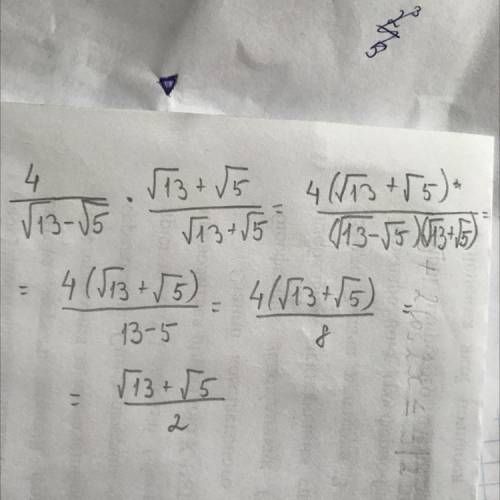 4/(√13-√5) · (√13+√5)/(√13+√5) = 4(√13+√5)*/((√13-√5)(√13+√5)) =
= 4(√13+√5)/(13-5) = 4(√13+√5)/8 =
= (√13+√5)/2